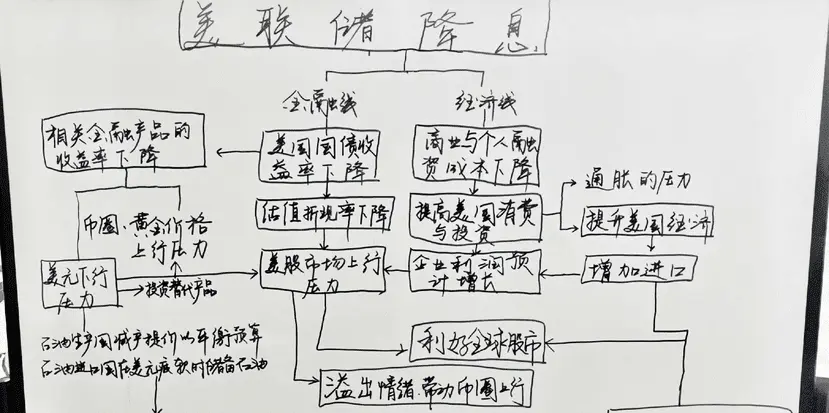 美联储降息
金融线
经济线
相关金融产品的
收益率下降
美国国债收
益率下降
商业与个人融
资成本下降
通胀的压力
币圈、黄金价格
上行压力
估值折现率下降
提高美国消费
与投资
提升美国经济
美元下行
压力
投资替代产品
美股市场上行
压力
企业利润预
计增长
增加进口
石油生产国减产提价以平衡预算
石油进口国在美元疲软时储备石油
利好全球股市
溢出情绪、带动币圈上行